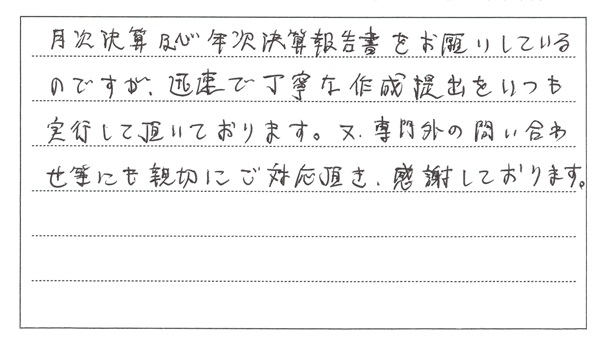 月次決算及び年次決算報告書をお願いしている
のですが、迅速で丁寧な作成提出をいつも
実行して頂いております。又、専門外の問い合わ
せ等にも親切にご対応頂き、感謝しております。